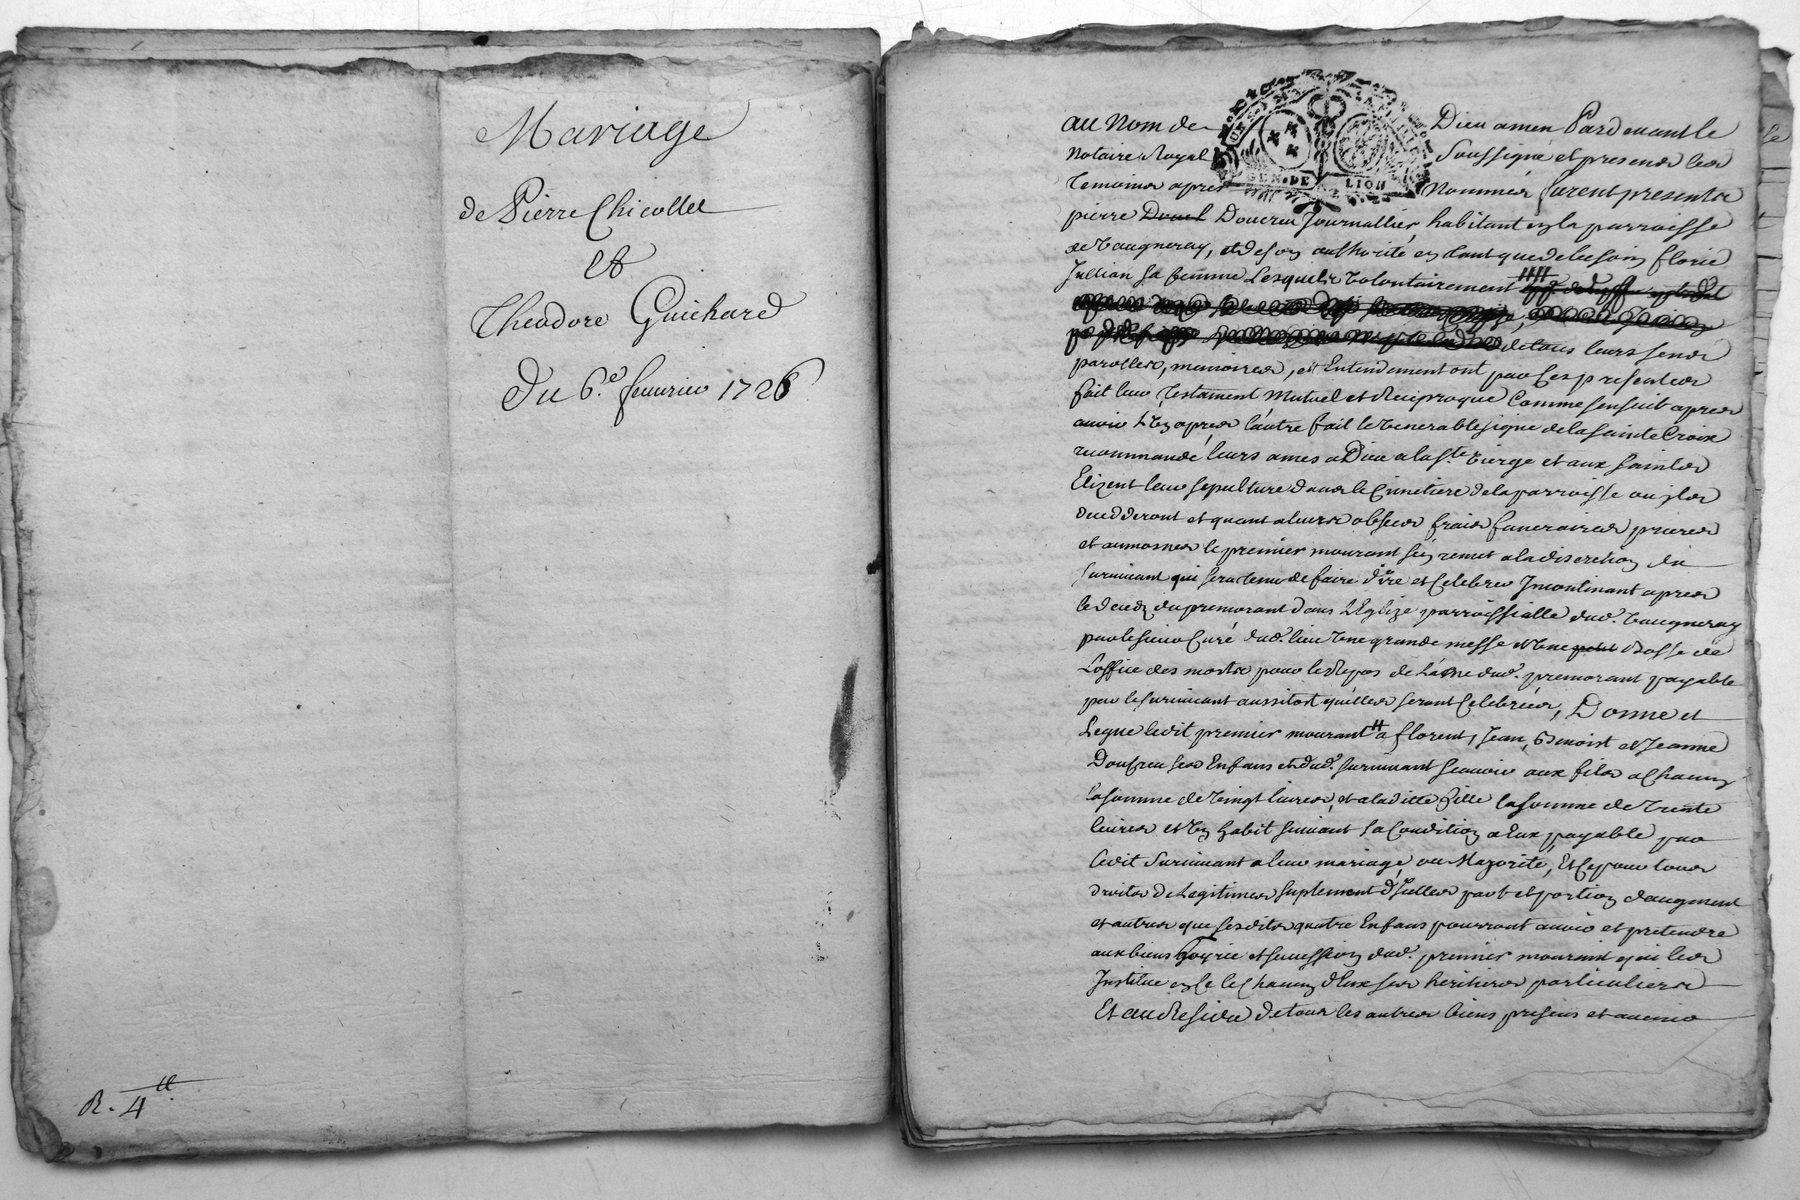 Mariage
de Pierre Chicollet
et
Theodore Guichard
Du 6.e feuurier 1726
R. 4ll.
au Nom de Dieu amen Pardeuant le
Notaire Royal Soussigné et presence les
Temoins apres Nommées furent presents
GEN. DE LION
pierre Doucreu Journallier, habitant en la parroisse
de Vaugneray, et de son authorité en tant que de besoin florie
Jullian sa femme Lesquels Volontairement
de tous leurs sens
parolles, memoires, et Entendement ont par ces presentes
fait leur Testament Mutuel et Reciproque Comme sensuit apres
auoir L'un apres l'autre fait le Venerable signe de la Sainte Croix
recommandé leurs ames a Dieu a la Ste. Vierge et aux Saints
Elizent leur sepulture dans le Cimetiere de la parroisse ou ils
decedderont et quant a leurs obseques frais funeraires prieres
et aumosnes le premier mourant s'en remet a la discretion du
suruiuant qui sera tenu de faire dire et Celebrer Incontinant apres
le decez du premorant dans L'Eglize parroissialle dud. Vaugneray
par le sieur Curé dud. lieu Une grande messe et Une basse de
L'office des morts pour le Repos de L'ame dud. premorant payable
par le suruiuant aussitost qu'elles seront Celebrées, Donne et
Legue ledit premier mourant a florent, Jean, Benoist et Jeanne
Doucreu ses Enfans et dud. suruiuant scauoir aux fils a Chacun
la somme de Vingt liures, et a la ditte fille la somme de trente
liures et Un habit suiuant sa Condition a Eux payable par
Ledit Suruiuant a leur mariage, ou Majorité, Et Ce pour tous
droits de Legitimes suplement d'Icelles part et portion d'augment
et autres que sesdits quatre Enfans pourront auoir et pretendre
aux biens hoirie et succession dud. premier mourant qui les
Institue en Ce le Chacun d'Eux ses heritiers particuliers
Et au Residu de tous les autres biens presens et auenir